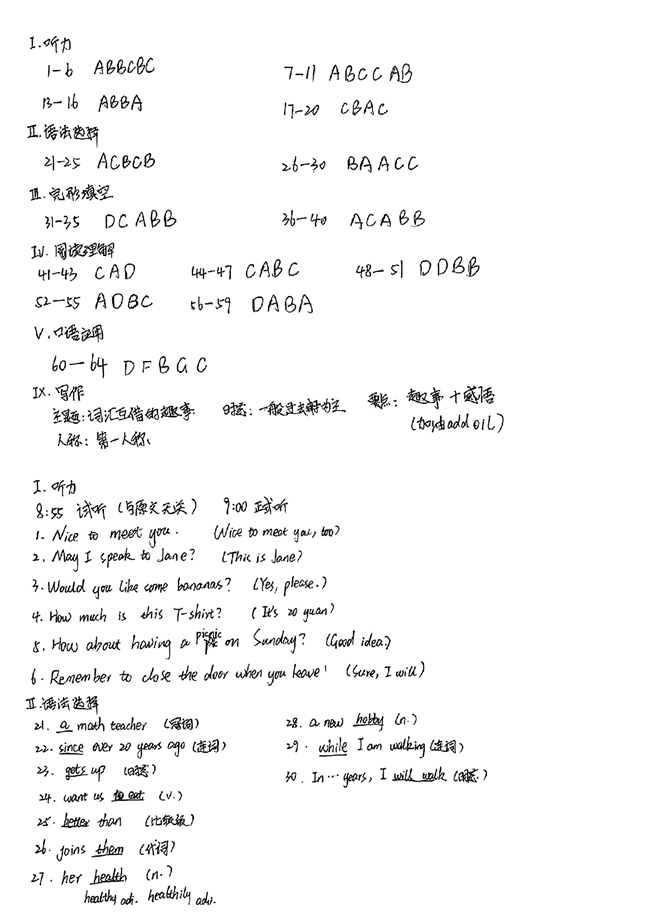 I. 听力
1-6 ABBCBC 7-11 ABCCAB
13-16 ABBA 17-20 CBAC
II. 语法选择
21-25 ACBCB 26-30 BAACC
III. 完形填空
31-35 DCABB 36-40 ACABB
IV. 阅读理解
41-43 CAD 44-47 CABC 48-51 DDBB
52-55 ADBC 56-59 DABA
V. 口语应用
60-64 DFBGC
IX. 写作
主题: 词汇互借的趣事 时态: 一般过去时为主 要点: 趣事+感悟
人称: 第一人称 add oil)
I. 听力
8:55 试听 (与原文无关) 9:00 正式听
1. Nice to meet you. (Nice to meet you, too)
2. May I speak to Jane? (This is Jane)
3. Would you like some bananas? (Yes, please.)
4. How much is this T-shirt? (It's 20 yuan)
5. How about having a picnic on Sunday? (Good idea.)
6. Remember to close the door when you leave! (Sure, I will)
II. 语法选择
21. a math teacher (冠词) 28. a new hobby (n.)
22. since over 20 years ago (连词) 29. while I am walking (连词)
23. gets up (时态) 30. In … years, I will walk (时态.)
24. want us to eat (v.)
25. better than (比较级)
26. joins them (代词)
27. her health (n.)
healthy adj. healthily adv.